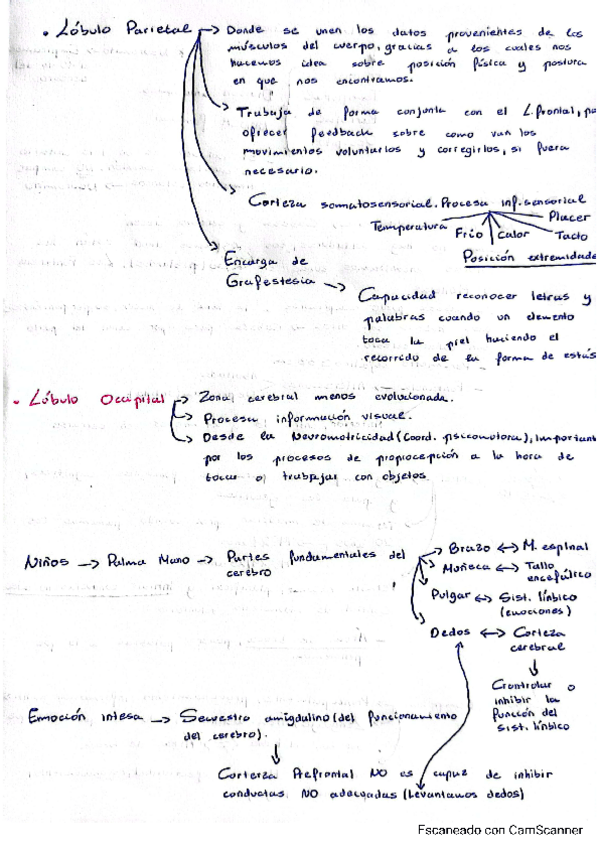 • Lóbulo Parietal → Donde se unen los datos provenientes de los
músculos del cuerpo, gracias a los cuales nos
hacemos idea sobre posición física y postura
en que nos encontramos.
→ Trabaja de forma conjunta con el L.frontal, pa
ofrecer feedback sobre como van los
movimientos voluntarios y corregirlos, si fuera
necesario.
→ Corteza somatosensorial. Procesa inf.sensorial
Temperatura Frío Calor Tacto Placer
Posición extremidade
→ Encarga de
Grafestesia → Capacidad reconocer letras y
palabras cuando un elemento
toca la piel haciendo el
recorrido de la forma de estás
• Lóbulo Occipital → Zona cerebral menos evolucionada.
→ Procesa información visual.
→ Desde la Neuromotricidad (Coord. psicomotora), important
por los procesos de propiocepción a la hora de
tocar o trabajar con objetos.
Niños → Palma Mano → Partes fundamentales del
cerebro
→ Brazo ↔ M. espinal
→ Muñeca ↔ Tallo
encefálico
→ Pulgar ↔ Sist. límbico
(emociones)
→ Dedos ↔ Corteza
cerebral
↓
Controlar o
inhibir la
función del
sist. límbico
Emoción intesa → Secuestro amigdalino (del funcionamiento
del cerebro).
↓
Corterza Prefrontal NO es capaz de inhibir
conductas NO adecuadas (Levantamos dedos)
Escaneado con CamScanner